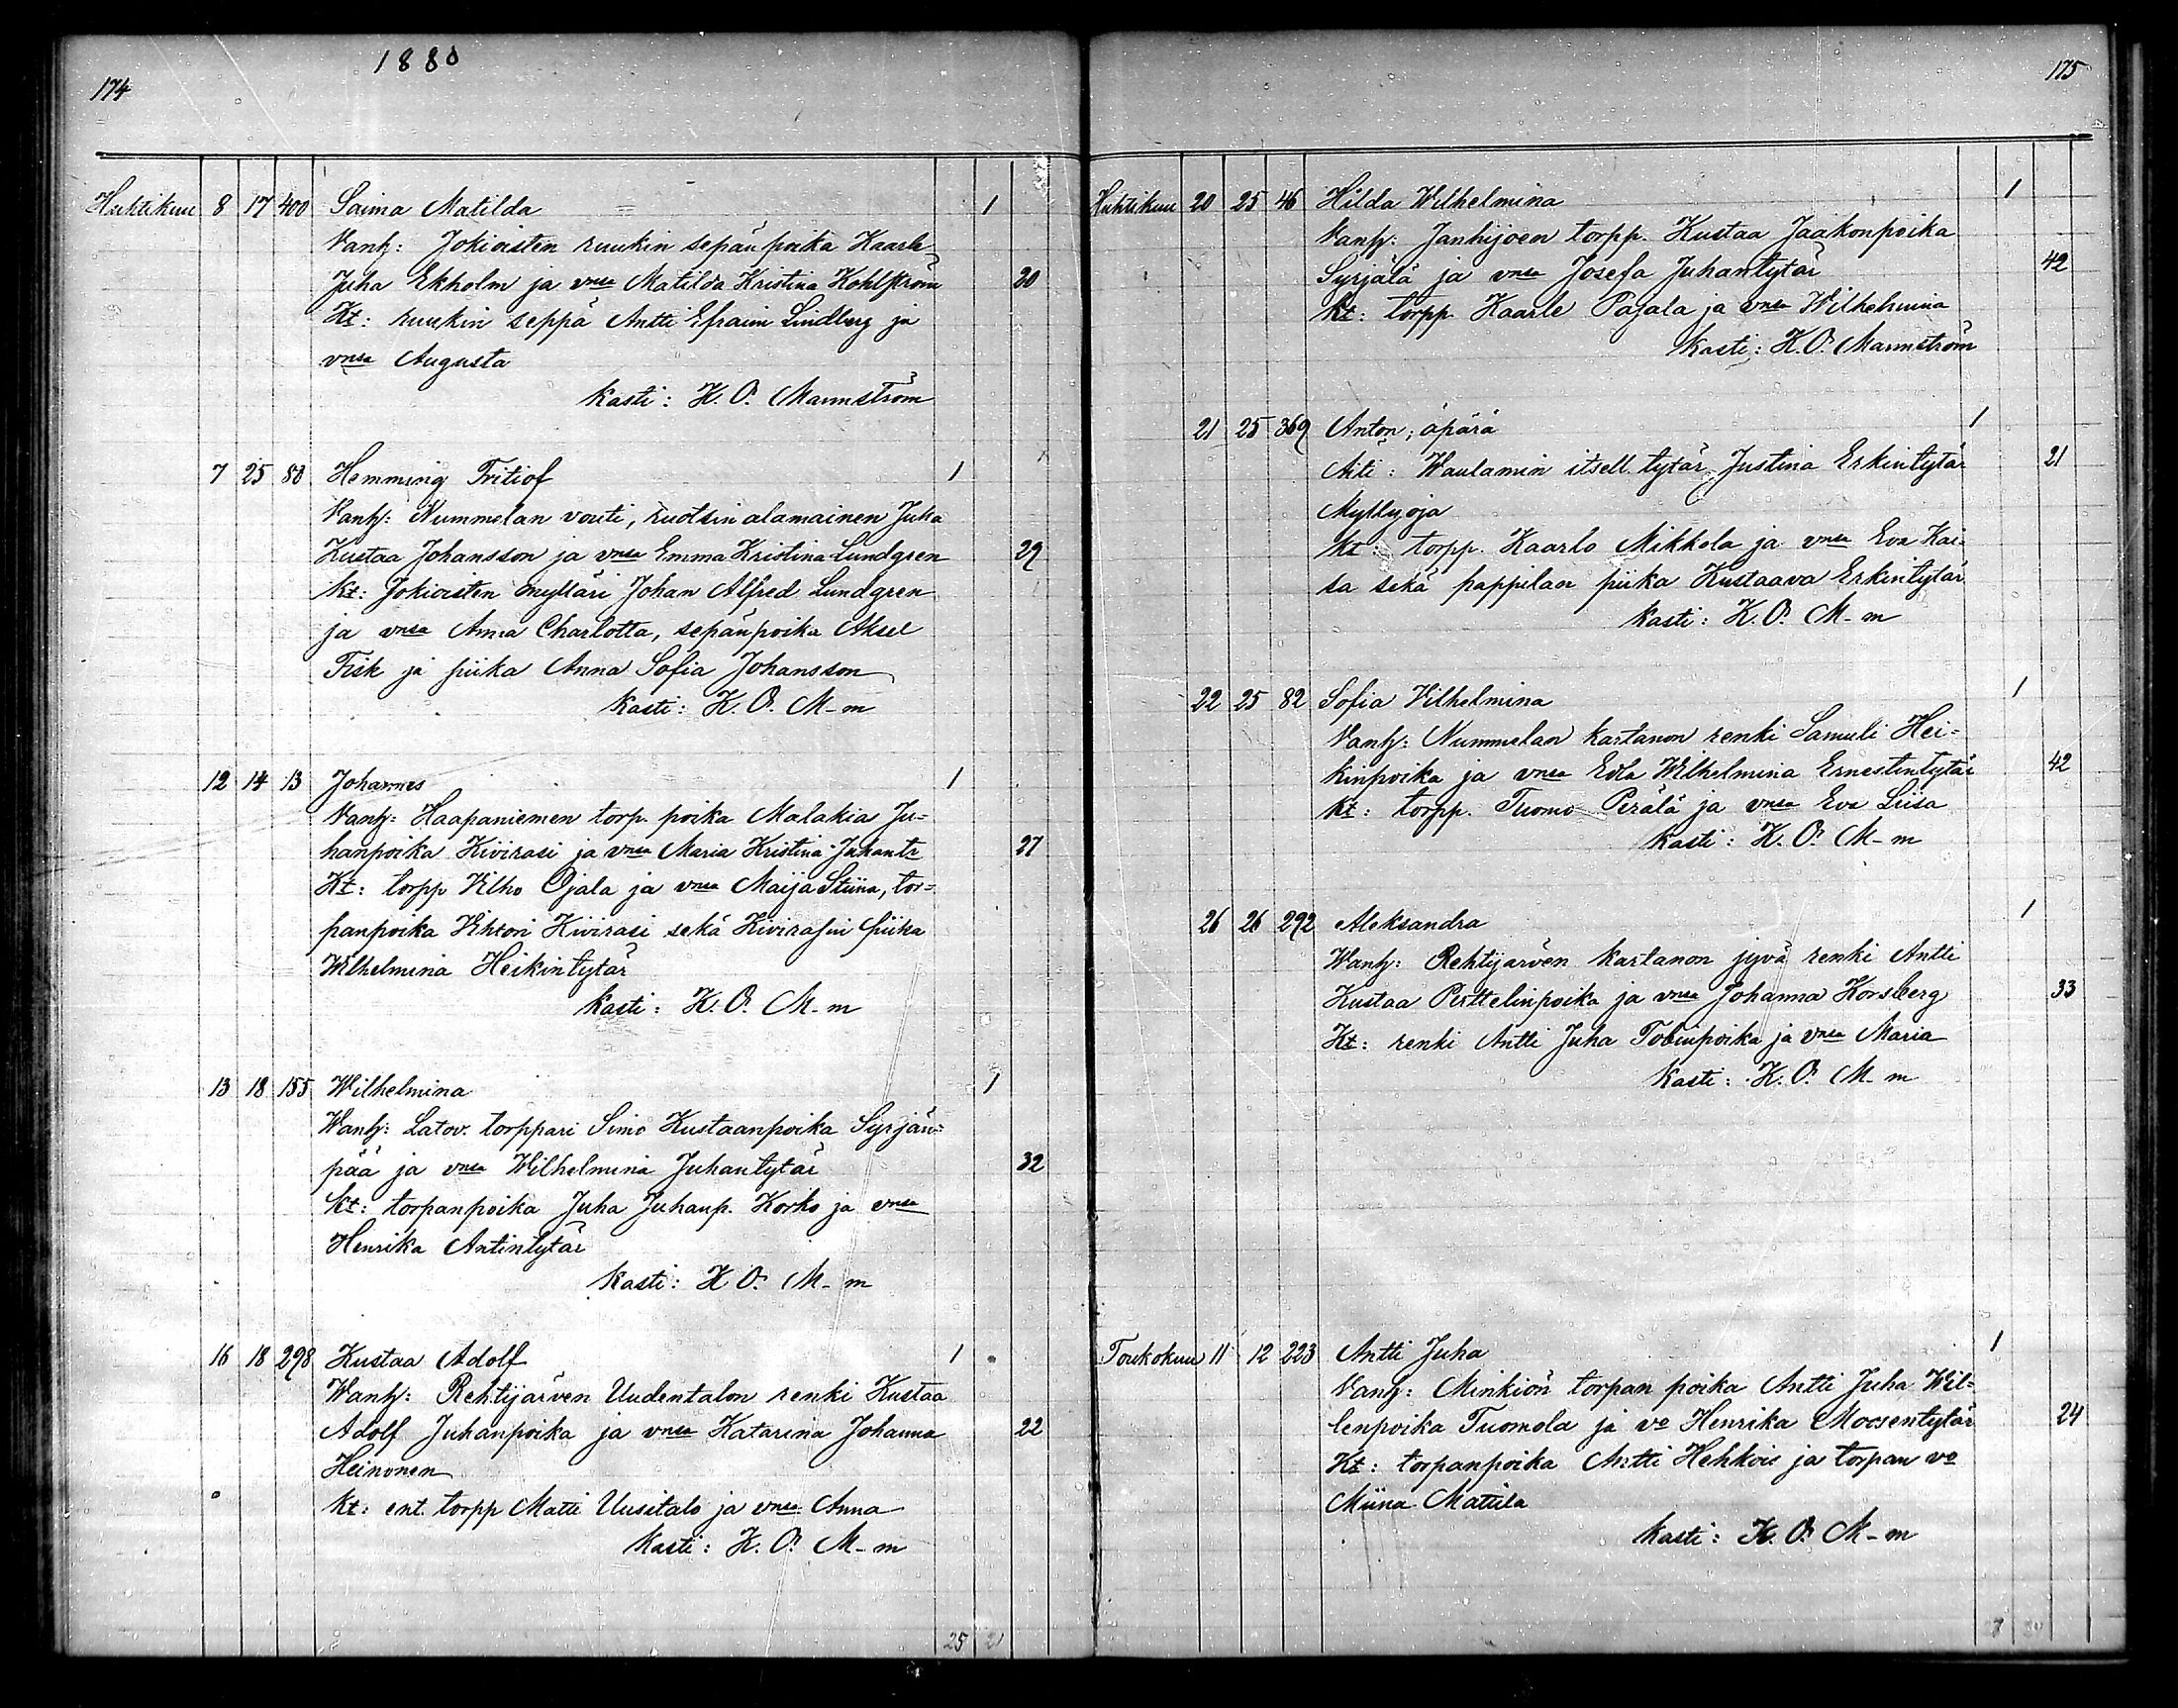 1880
174
Huhtikuu 8 17 400 Saima Matilda 1
Vanh: Jokioisten ruukin sepän poika Kaarle
Juha Ekholm ja vnsa Matilda Kristina Kohlström 20
Kt: ruukin seppä Antti Efraim Lindberg ja
vnsa Augusta
Kasti: K. O. Mannström
7 25 80 Hemming Fritiof 1
Vanh: Nummelan vouti, ruotsin alamainen Juha
Kustaa Johansson ja vnsa Emma Kristina Lundgren 29
Kt: Jokioisten mylläri Johan Alfred Lundgren
ja vnsa Anna Charlotta, sepänpoika Aksel
Fisk ja piika Anna Sofia Johansson
Kasti: K. O. M-m
12 14 13 Johannes 1
Vanh: Haapaniemen torp. poika Malakia Ju=
hanpoika Kivirasi ja vnsa Maria Kristina Juhantr 27
Kt: torpp Vilho Ojala ja vnsa Maija Stiina, tor=
panpoika Vihtori Kiirasi sekä Kivirasin piika
Wilhelmina Heikintytär
Kasti: K. O. M-m
13 18 155 Wilhelmina 1
Wanh: Latov. torppari Simo Kustaanpoika Syrjän=
pää ja vnsa Wilhelmina Juhantytär 32
Kt: torpanpoika Juha Juhanp. Korko ja vnsa
Henrika Antintytär
Kasti: K O. M-m
16 18 298 Kustaa Adolf 1
Wanh: Rehtijärven Uudentalon renki Kustaa
Adolf Juhanpoika ja vnsa Katarina Johanna 22
Heinonen
Kt: ent. torpp Matti Uusitalo ja vnsa Anna
Kasti: K. O. M-m
25 21
175
Huhtikuu 20 25 46 Hilda Wilhelmina 1
Vanh: Janhijoen torpp. Kustaa Jaakonpoika
Syrjälä ja vnsa Josefa Juhantytär 42
Kt: torpp. Kaarle Pajala ja vnsa Wilhelmina
Kasti: K. O. Mannström
21 25 369 Anton; äpärä 1
Äiti: Waulamin itsell. tytär Justina Erkintytär 21
Myllyoja
Kt torpp. Kaarlo Mikkola ja vnsa Eva Kai=
sa sekä pappilan piika Kustaava Erkintytär
Kasti: K. O. M-m
22 25 82 Sofia Vilhelmina 1
Vanh: Nummelan kartanon renki Samuli Hei=
kinpoika ja vnsa Edla Wilhelmina Ernestintytär 42
Kt: torpp. Tuomo Perälä ja vnsa Eva Liisa
Kasti: K. O. M-m
26 26 292 Aleksandra 1
Wanh: Rehtijärven kartanon jyvä renki Antti
Kustaa Perttelinpoika ja vnsa Johanna Korsberg 33
Kt: renki Antti Juha Tobinpoika ja vnsa Maria
Kasti: K. O. M-m
Toukokuu 11 12 223 Antti Juha 1
Vanh: Minkiön torpan poika Antti Juha Wil=
lenpoika Tuomola ja vo Henrika Moosentytär 24
Kt: torpanpoika Antti Hehkois ja torpan vo
Miina Mattila
Kasti: K. O. M-m